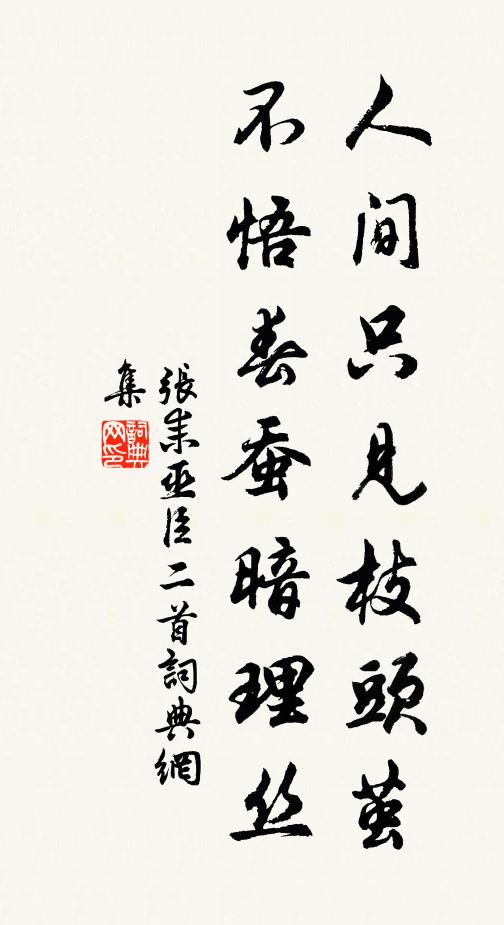 人间只見枝頭茧
不悟春蚕暗理丝
張耒巫臣二首詞典網
集
詞典網印